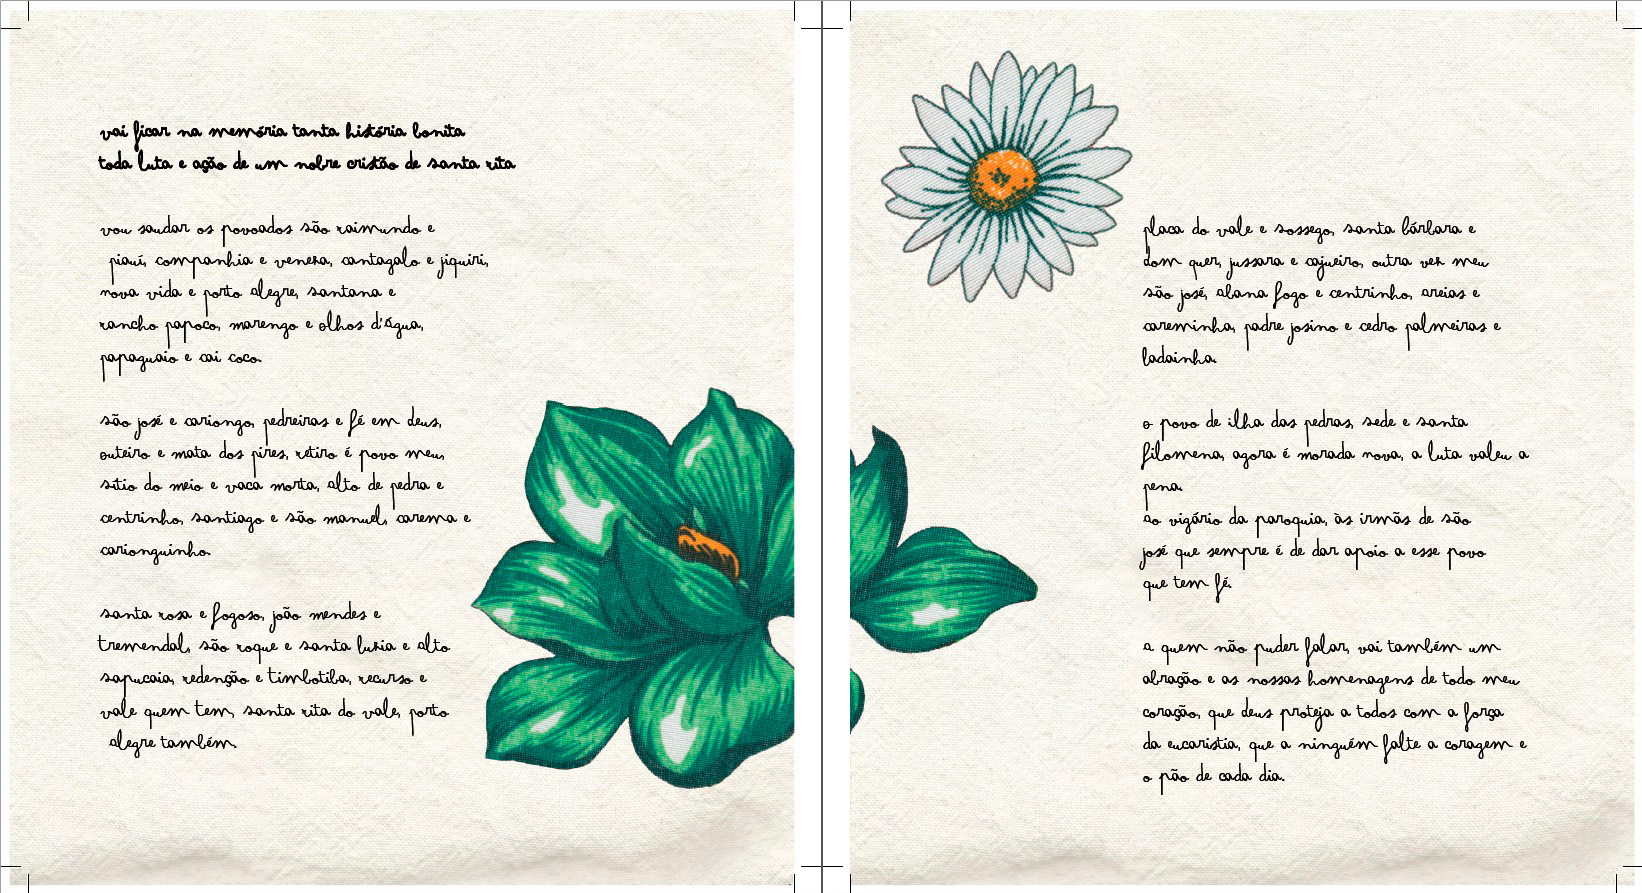 vai ficar na memória tanta história bonita
toda luta e ação de um nobre cristão de santa rita
vou saudar os povoados são raimundo e
piauí, companhia e veneza, cantagalo e jiquiri,
nova vida e porto alegre, santana e
rancho papoco, marengo e olhos d'água,
papaguaio e cai coco.
são josé e cariongo, pedreiras e fé em deus,
outeiro e mata dos pires, retiro é povo meu,
sítio do meio e vaca morta, alto de pedra e
centrinho, santiago e são manuel, carema e
carionguinho.
santa rosa e fogoso, joão mendes e
tremendal, são roque e santa luzia e alto
sapucaia, redenção e timbotiba, recurso e
vale quem tem, santa rita do vale, porto
alegre também.
placa do vale e sossego, santa bárbara e
dom quer, jussara e cajueiro, outra vez meu
são josé, alana fogo e centrinho, areias e
careminha, padre josino e cedro palmeiras e
ladainha.
o povo de ilha das pedras, sede e santa
filomena, agora é morada nova, a luta valeu a
pena.
ao vigário da paroquia, às irmãs de são
josé que sempre é de dar apoio a esse povo
que tem fé.
a quem não puder falar, vai também um
abração e as nossas homenagens de todo meu
coração, que deus proteja a todos com a força
da eucaristia, que a ninguém falte a coragem e
o pão de cada dia.